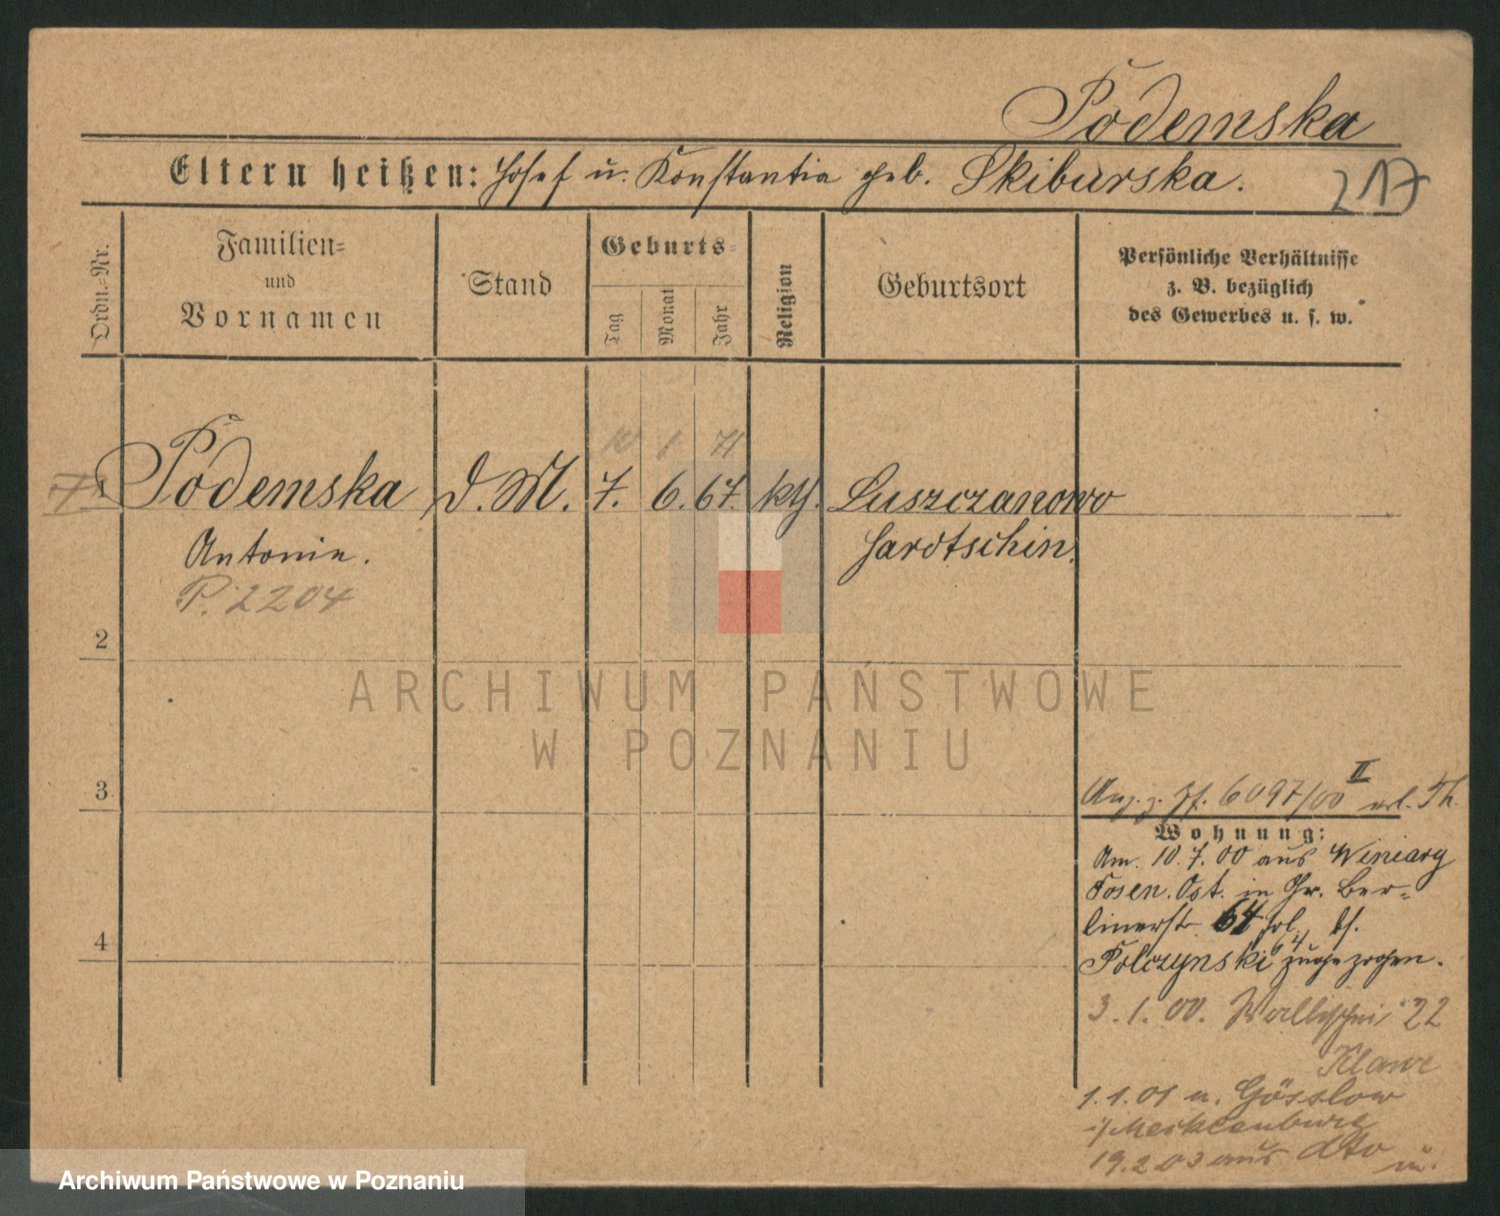 Podemska
Eltern heißen: Josef u. Konstantia geb. Skiburska.
217
Ordn.-Nr.
Familien-
und
Vornamen
Stand
Geburts-
Tag
Monat
Jahr
Religion
Geburtsort
Persönliche Verhältnisse
z. B. bezüglich
des Gewerbes u. s. w.
10 1 71
1 Podemska d. M. 7. 6. 67. kth. Luszczanowo
Antonie. Jarotschin.
P. 2204
2
3
4
Anz. z. 6097/00 II
Wohnung:
Am 10.7.00 aus Winiary
Posen. Ost. in Gr. Ber-
linerstr. 64 bei
Polczynski 64 zugezogen.
3.1.00. Wallischei 22
Klawe
1.1.01 n. Gösslow
i/Mecklenburg
19.2.03 aus dto
ARCHIWUM PAŃSTWOWE
W POZNANIU
Archiwum Państwowe w Poznaniu